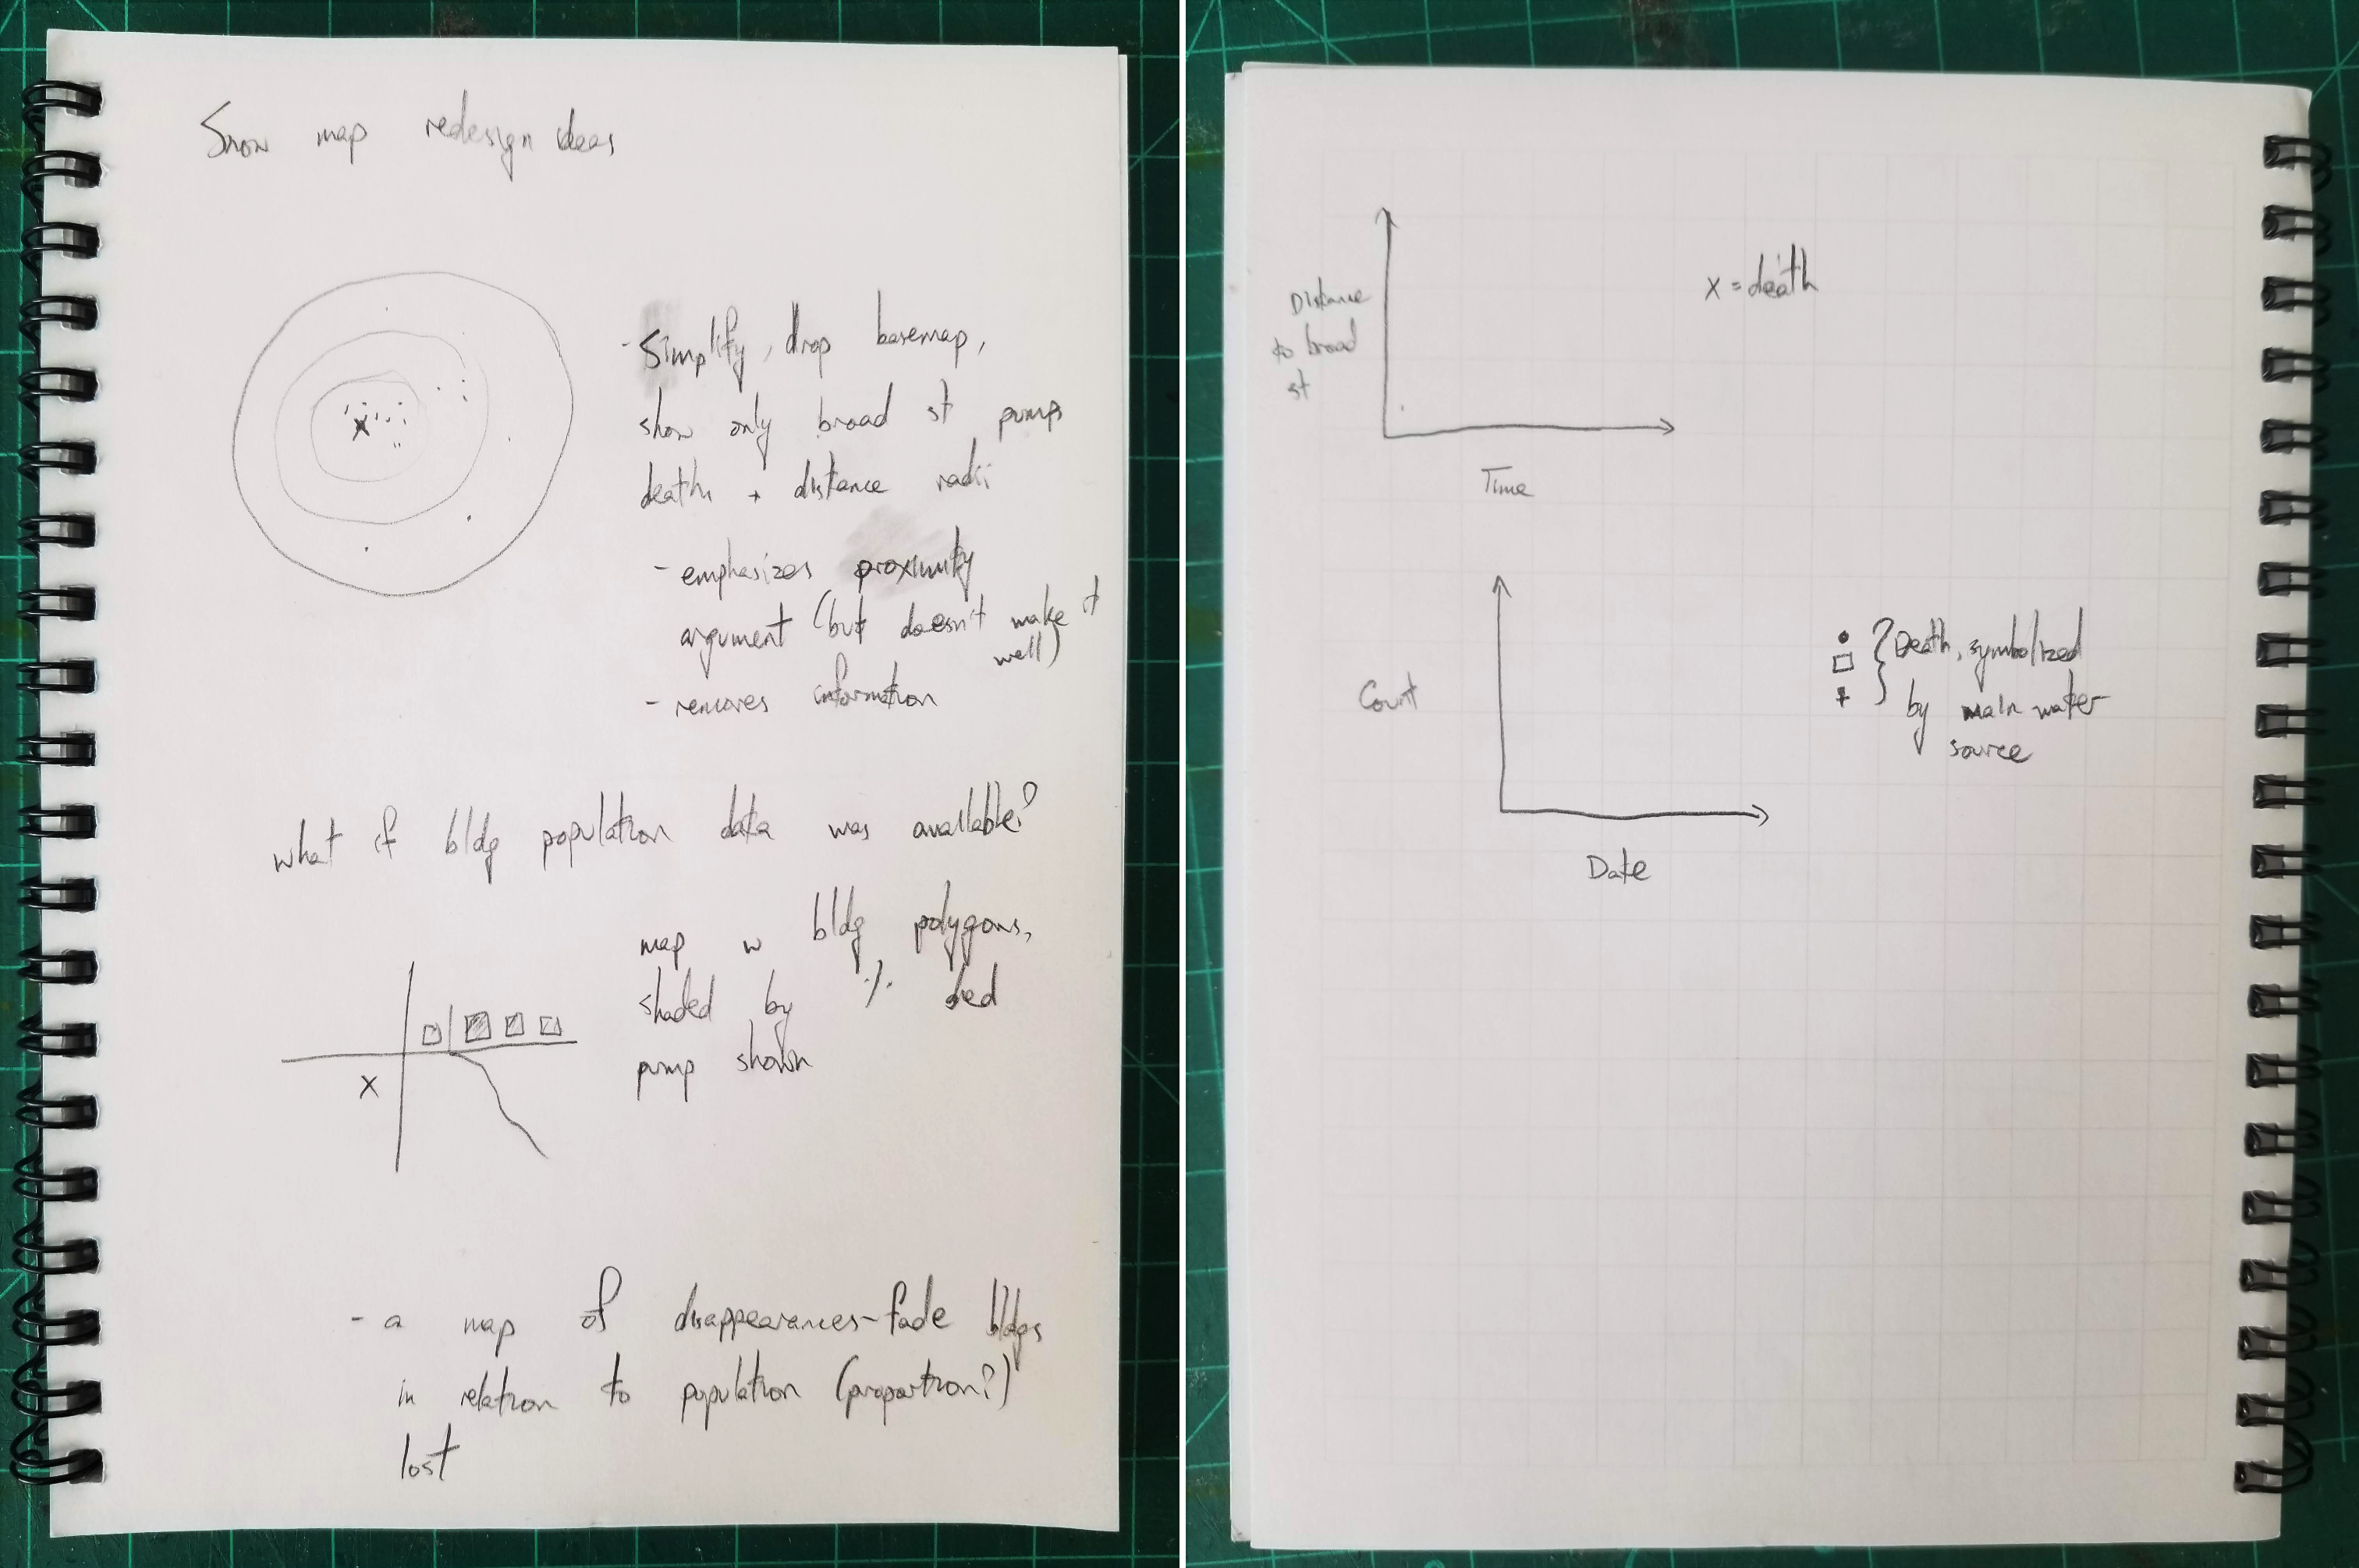 Snow map redesign ideas
- Simplify, drop basemap,
show only broad st pump
deaths + distance radii
- emphasizes proximity
argument (but doesn't make it
well)
- removes information
what if bldg population data was available?
map w bldg polygons,
shaded by % died
pump shown
X
- a map of disappearances - fade bldgs
in relation to population (proportion?)
lost
Distance
to broad
st
x = death
Time
Count
Death, symbolized
by main water
source
Date